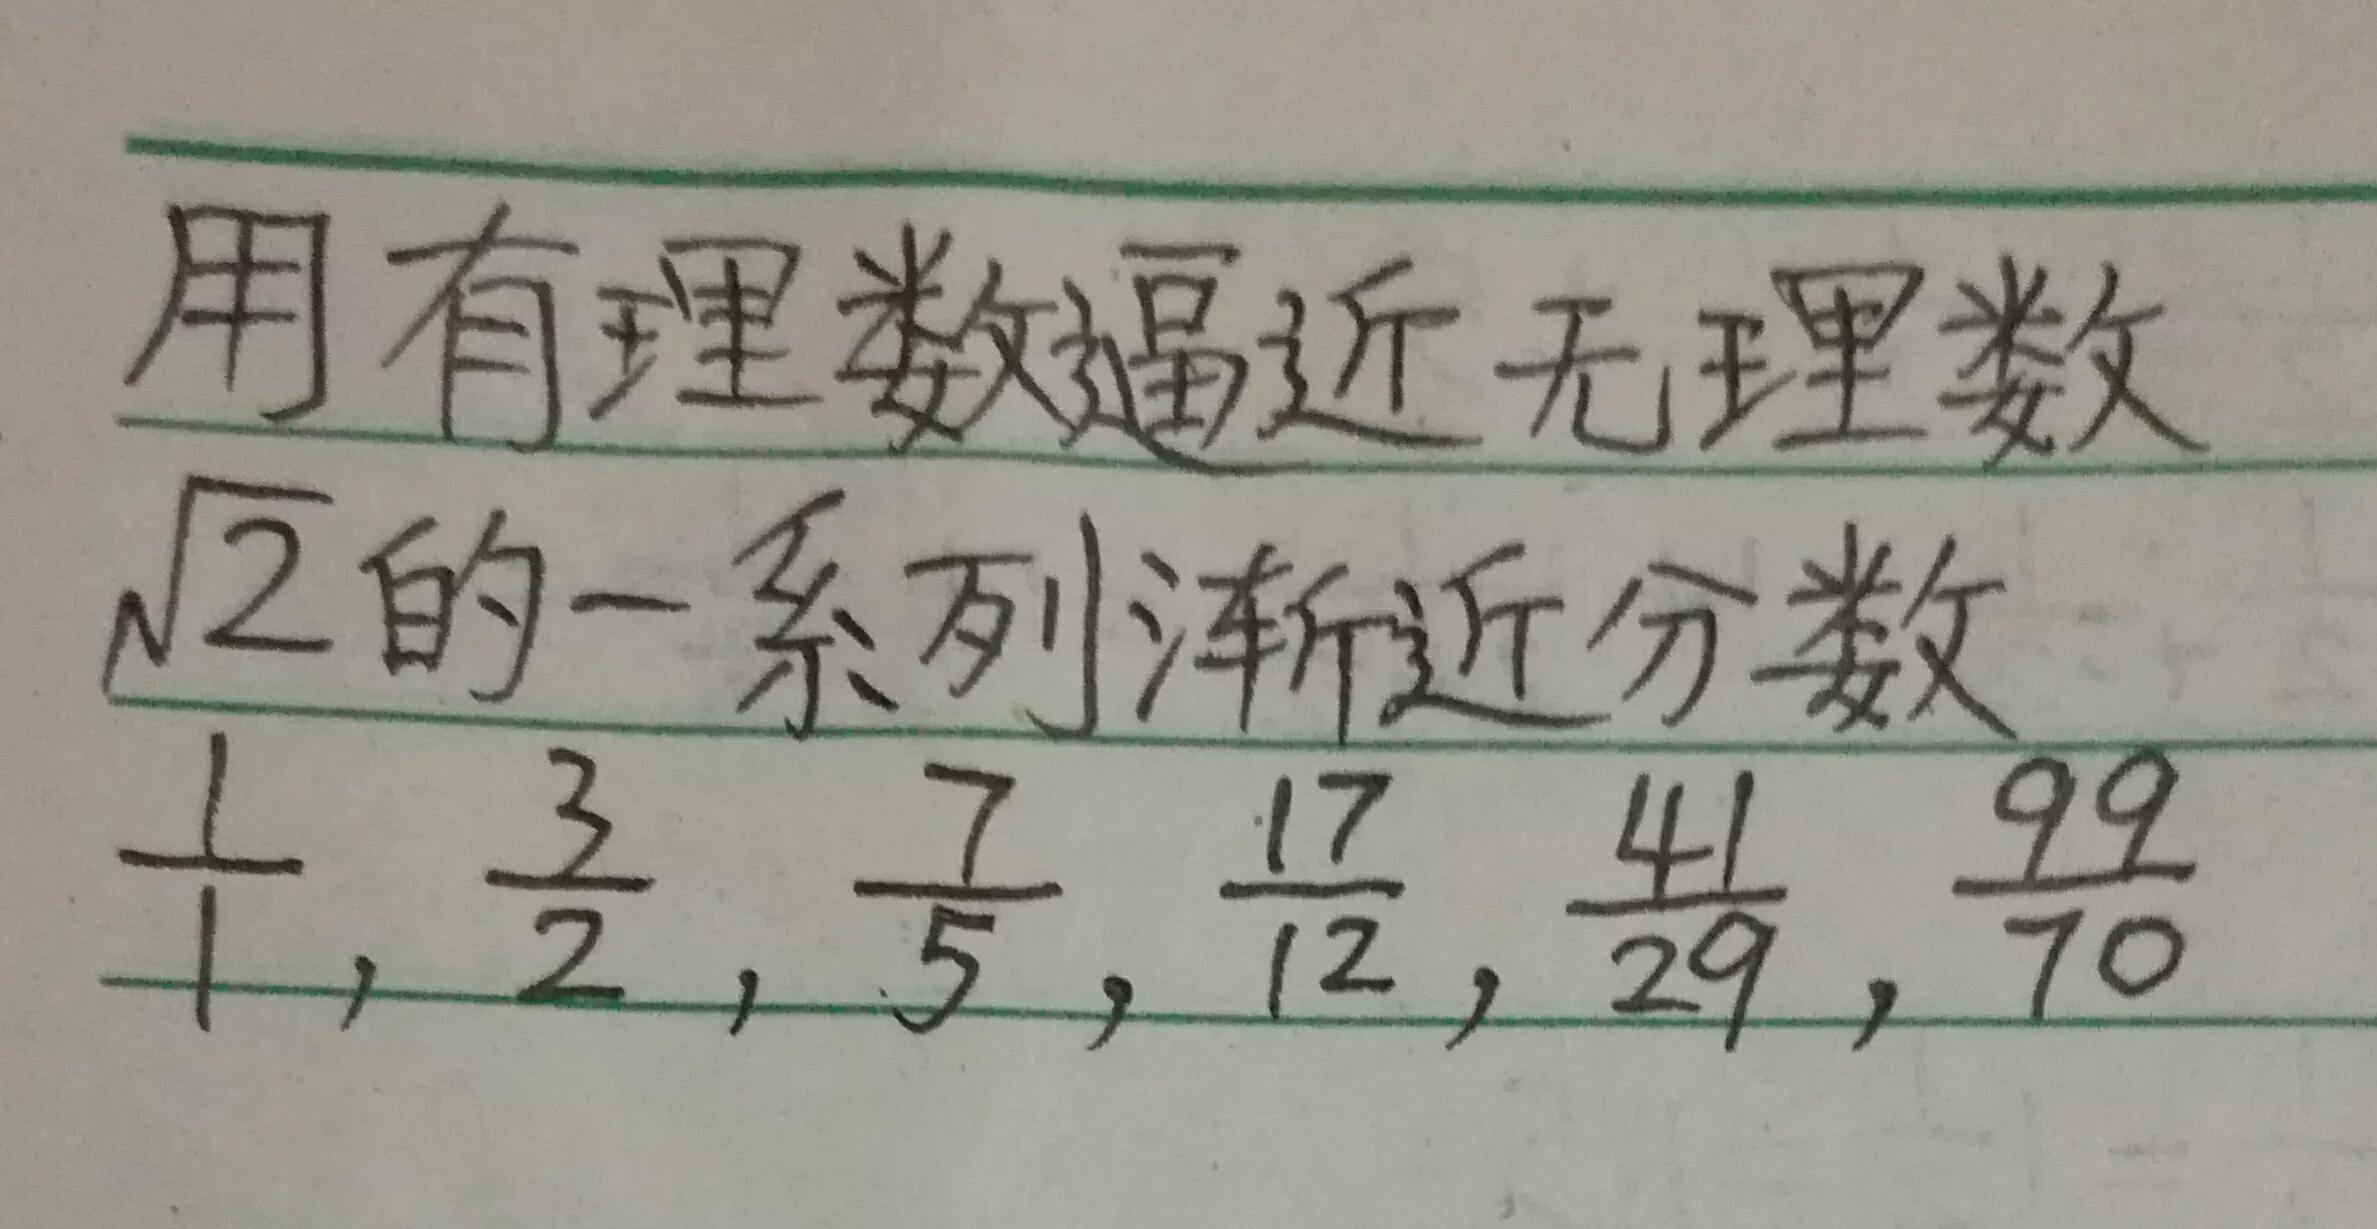 用有理数逼近无理数
√2的一系列渐近分数
1/1, 3/2, 7/5, 17/12, 41/29, 99/70